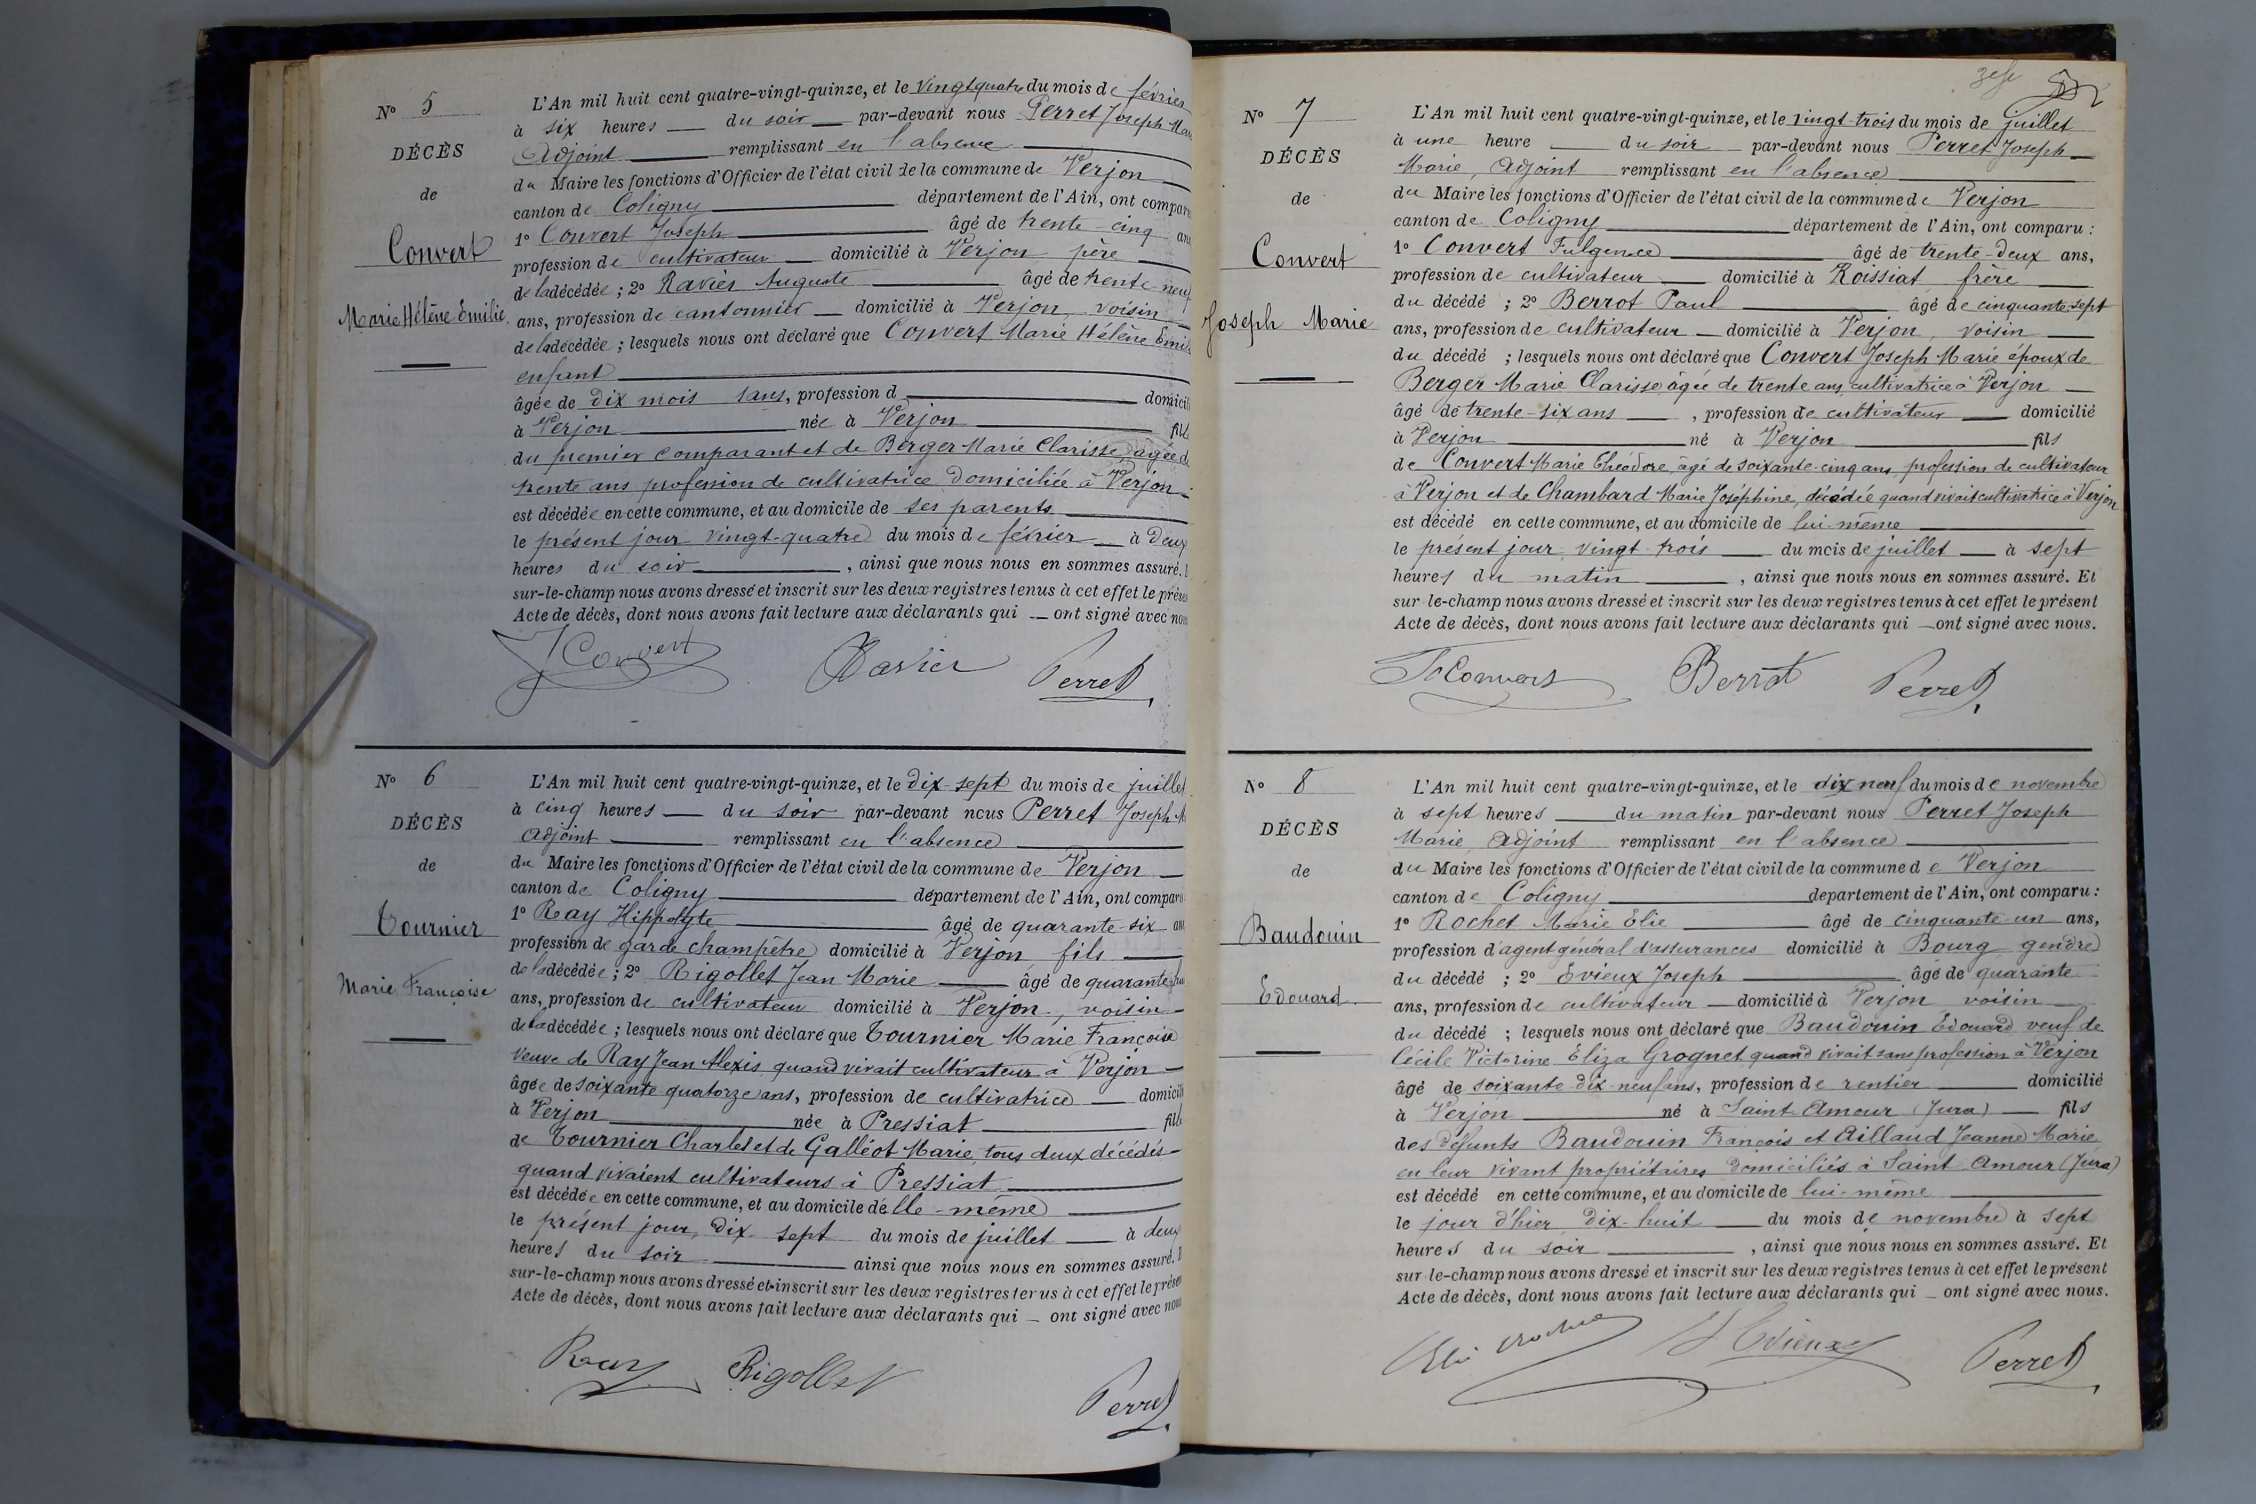 N° 5
DÉCÈS
de
Convert
Marie Hélène Emilie
L'An mil huit cent quatre-vingt-quinze, et le vingt quatre du mois de février
à six heures du soir par-devant nous Perret Joseph Marie
Adjoint remplissant en l'absence
du Maire les fonctions d'Officier de l'état civil de la commune de Verjon
canton de Coligny département de l'Ain, ont comparu
1° Convert Joseph âgé de trente-cinq ans
profession de cultivateur domicilié à Verjon père
de la décédée ; 2° Ravier Auguste âgé de trente-neuf
ans, profession de cantonnier domicilié à Verjon, voisin
de la décédée ; lesquels nous ont déclaré que Convert Marie Hélène Emilie
enfant
âgée de dix mois ans, profession d domicili
à Verjon née à Verjon fille
du premier comparant et de Berger Marie Clarisse, âgée de
trente ans profession de cultivatrice domiciliée à Verjon
est décédée en cette commune, et au domicile de ses parents
le présent jour vingt-quatre du mois de février à deux
heures du soir, ainsi que nous nous en sommes assuré.
sur-le-champ nous avons dressé et inscrit sur les deux registres tenus à cet effet le présent
Acte de décès, dont nous avons fait lecture aux déclarants qui ont signé avec nous
J Convert Ravier Perret
N° 6
DÉCÈS
de
Tournier
Marie Françoise
L'An mil huit cent quatre-vingt-quinze, et le dix-sept du mois de juillet
à cinq heures du soir par-devant nous Perret Joseph M
adjoint remplissant en l'absence
du Maire les fonctions d'Officier de l'état civil de la commune de Verjon
canton de Coligny département de l'Ain, ont comparu
1° Ray Hippolyte âgé de quarante-six ans
profession de garde champêtre domicilié à Verjon fils
de la décédée ; 2° Rigollet Jean Marie âgé de quarante
ans, profession de cultivateur domicilié à Verjon, voisin
de la décédée ; lesquels nous ont déclaré que Tournier Marie Françoise
veuve de Ray Jean Alexis quand vivait cultivateur à Verjon
âgée de soixante quatorze ans, profession de cultivatrice domicili
à Verjon née à Pressiat fille
de Tournier Charles et de Galléot Marie, tous deux décédés
quand vivaient cultivateurs à Pressiat
est décédée en cette commune, et au domicile d'elle-même
le présent jour, dix-sept du mois de juillet à deux
heures du soir ainsi que nous nous en sommes assuré.
sur-le-champ nous avons dressé et inscrit sur les deux registres tenus à cet effet le présent
Acte de décès, dont nous avons fait lecture aux déclarants qui ont signé avec nous
Ray Rigollet Perret
N° 7
DÉCÈS
de
Convert
Joseph Marie
L'An mil huit cent quatre-vingt-quinze, et le vingt-trois du mois de juillet
à une heure du soir par-devant nous Perret Joseph
Marie, Adjoint remplissant en l'absence
du Maire les fonctions d'Officier de l'état civil de la commune de Verjon
canton de Coligny département de l'Ain, ont comparu :
1° Convert Fulgence âgé de trente-deux ans,
profession de cultivateur domicilié à Roissiat frère
du décédé ; 2° Berrot Paul âgé de cinquante-sept
ans, profession de cultivateur domicilié à Verjon, voisin
du décédé ; lesquels nous ont déclaré que Convert Joseph Marie époux de
Berger Marie Clarisse âgée de trente ans, cultivatrice à Verjon
âgé de trente-six ans, profession de cultivateur domicilié
à Verjon né à Verjon fils
de Convert Marie Théodore, âgé de soixante-cinq ans, profession de cultivateur
à Verjon et de Chambard Marie Joséphine, décédée quand vivait cultivatrice à Verjon
est décédé en cette commune, et au domicile de lui-même
le présent jour vingt-trois du mois de juillet à sept
heures du matin, ainsi que nous nous en sommes assuré. Et
sur-le-champ nous avons dressé et inscrit sur les deux registres tenus à cet effet le présent
Acte de décès, dont nous avons fait lecture aux déclarants qui ont signé avec nous.
F Convert Berrot Perret
N° 8
DÉCÈS
de
Baudouin
Edouard
L'An mil huit cent quatre-vingt-quinze, et le dix neuf du mois de novembre
à sept heures du matin par-devant nous Perret Joseph
Marie, Adjoint remplissant en l'absence
du Maire les fonctions d'Officier de l'état civil de la commune de Verjon
canton de Coligny département de l'Ain, ont comparu :
1° Rochet Marie Elie âgé de cinquante-un ans,
profession d'agent général d'assurances domicilié à Bourg gendre
du décédé ; 2° Evieux Joseph âgé de quarante
ans, profession de cultivateur domicilié à Verjon voisin
du décédé ; lesquels nous ont déclaré que Baudouin Edouard veuf de
Cécile Victorine Eliza Grognet quand vivait sans profession à Verjon
âgé de soixante-dix-neuf ans, profession de rentier domicilié
à Verjon né à Saint-Amour (Jura) fils
des défunts Baudouin François et Aillaud Jeanne Marie
en leur vivant propriétaires domiciliés à Saint-Amour (Jura)
est décédé en cette commune, et au domicile de lui-même
le jour d'hier dix-huit du mois de novembre à sept
heures du soir, ainsi que nous nous en sommes assuré. Et
sur-le-champ nous avons dressé et inscrit sur les deux registres tenus à cet effet le présent
Acte de décès, dont nous avons fait lecture aux déclarants qui ont signé avec nous.
Elie Rochet J Evieux Perret